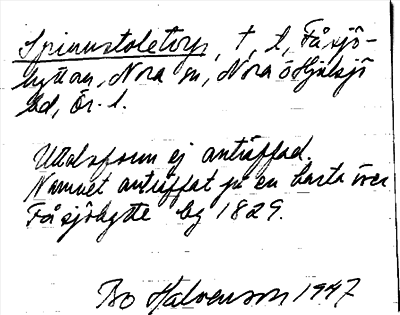 Spinnstoletorp, †, t, Fåsjö-
hyttan, Nora sn, Nora o Hjulsjö
bd, Ör. l.
Uttalsform ej anträffad.
Namnet anträffat på en karta över
Fåsjöhytte by 1829.
Bo Halvarson 1947